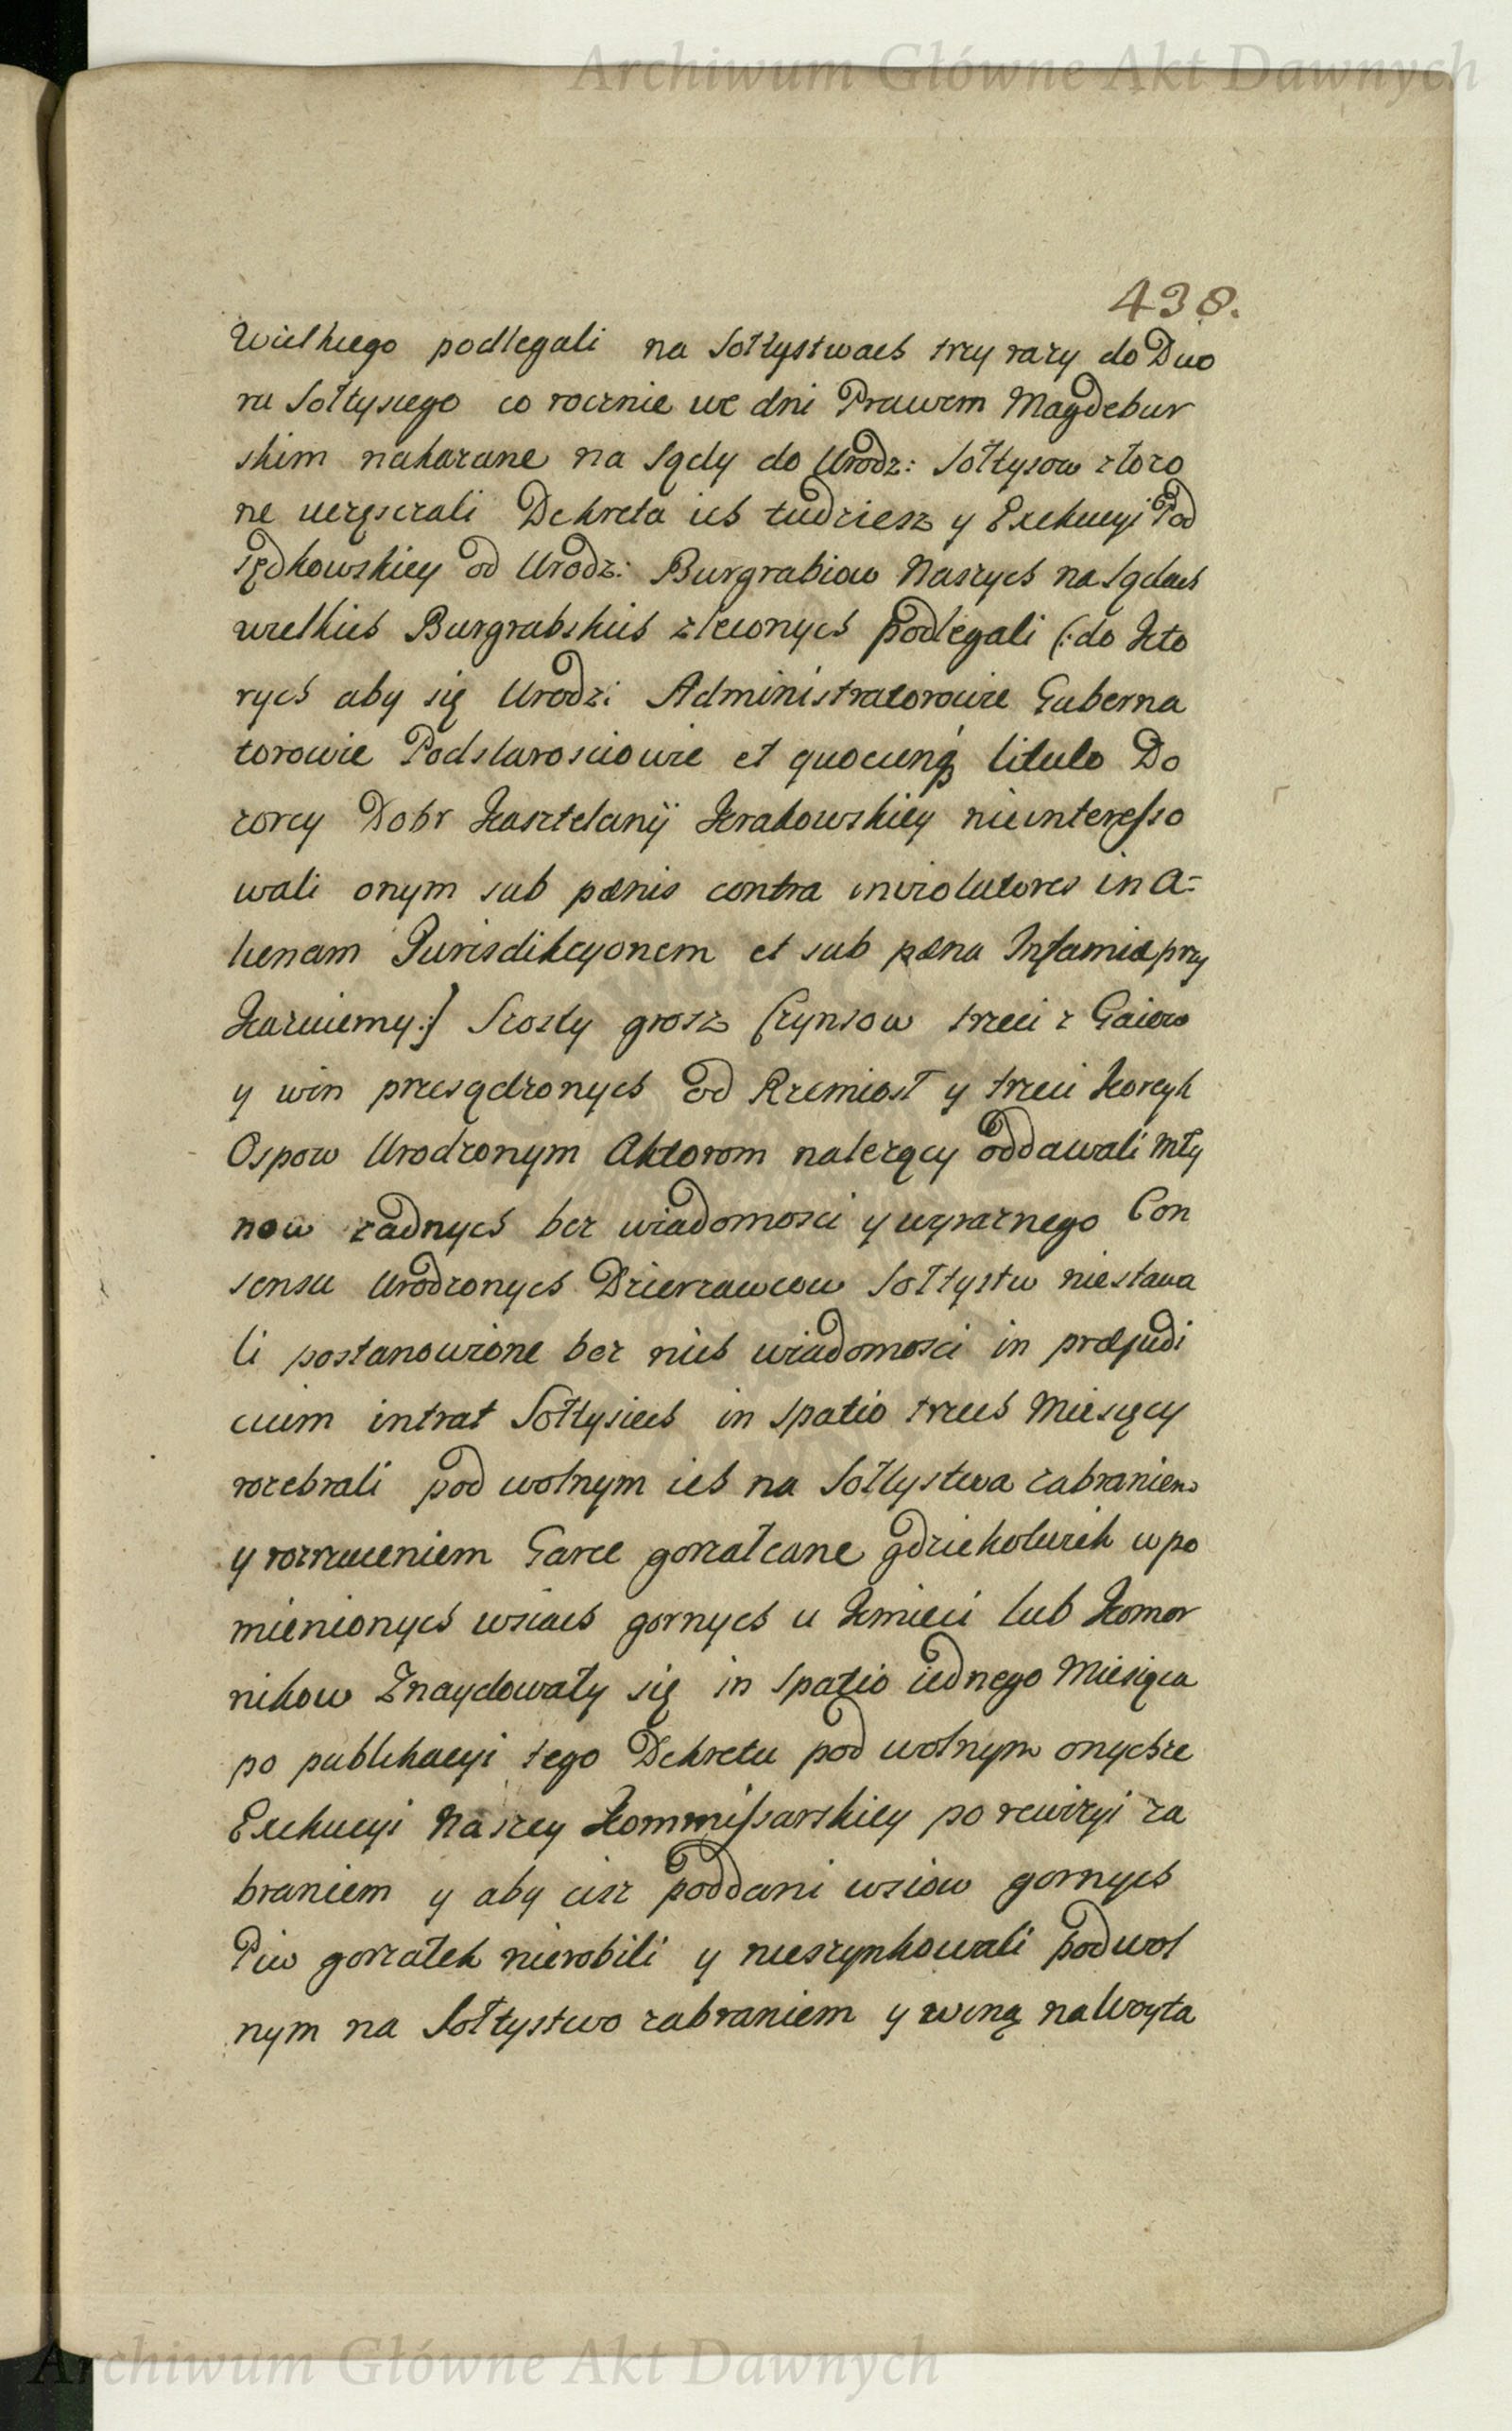 Archiwum Główne Akt Dawnych
438.
Wielkiego podlegali na Sołtystwach trzy razy do Dwo
ru Sołtysiego co rocznie we dni Prawem Magdebur
skim nakazane na Sądy do Urodz: Sołtysow złożo
ne uczęszczali Dekreta ich tudziesz y Exekucyi Pod
sędkowskiey od Urodz: Burgrabiow Naszych na Sądach
wielkich Burgrabskich zleconych podlegali (: do Kto
rych aby się Urodz: Administratorowie Guberna
torowie Podstarosciowie et quocunq titulo Do
zorcy Dobr Kasztelanÿ Krakowskiey nieinteresso
wali onym sub pænis contra inviolatores in A=
lienam Jurisdikcyonem et sub pæna Infamiæ przy
Kazuiemy :) Szosty grosz Czynsow trzeci z Gaiow
y win przesądzonych od Rzemiosł y trzeci Korczyk
Ospow Urodzonym Aktorom należący oddawali Mły
now żadnych bez wiadomosci y wyraznego Con
sensu Urodzonych Dzierzawcow Sołtystw niestawa
li postanowione bez nich wiadomosci in præjudi
cium intrat Sołtysiech in spatio trzech Miesięcy
rozebrali pod wolnym ich na Sołtystwa zabraniem
y rozrzuceniem Garce gorzałczane gdziekolwiek w po
mienionych wsiach gornych u Kmieci lub Komor
nikow Znaydowały się in spatio iednego Miesiąca
po publikacyi tego Dekretu pod wolnym onychze
Exekucyi Naszey Kommissarskiey po rewizyi za
braniem y aby cisz poddani wsiow gornych
Piw gorzałek nierobili y nieszynkowali pod wol
nym na Sołtystwo zabraniem y winą na Woyta
Archiwum Główne Akt Dawnych